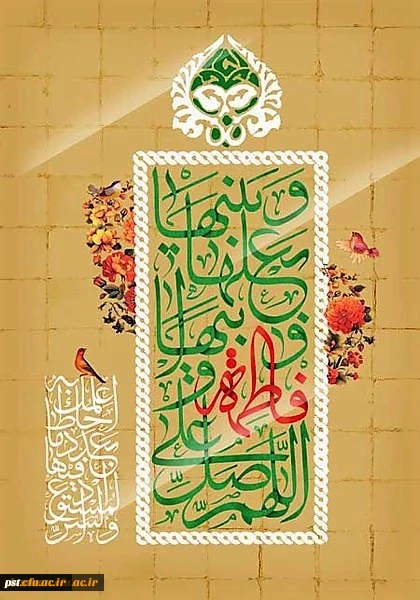 اللهم صل علی
فاطمة
و ابیها
و بعلها
و بنیها
و السر
المستودع
فیها
بعدد ما
احاط به
علمک
pst.cfu.ac.ir ac.ir